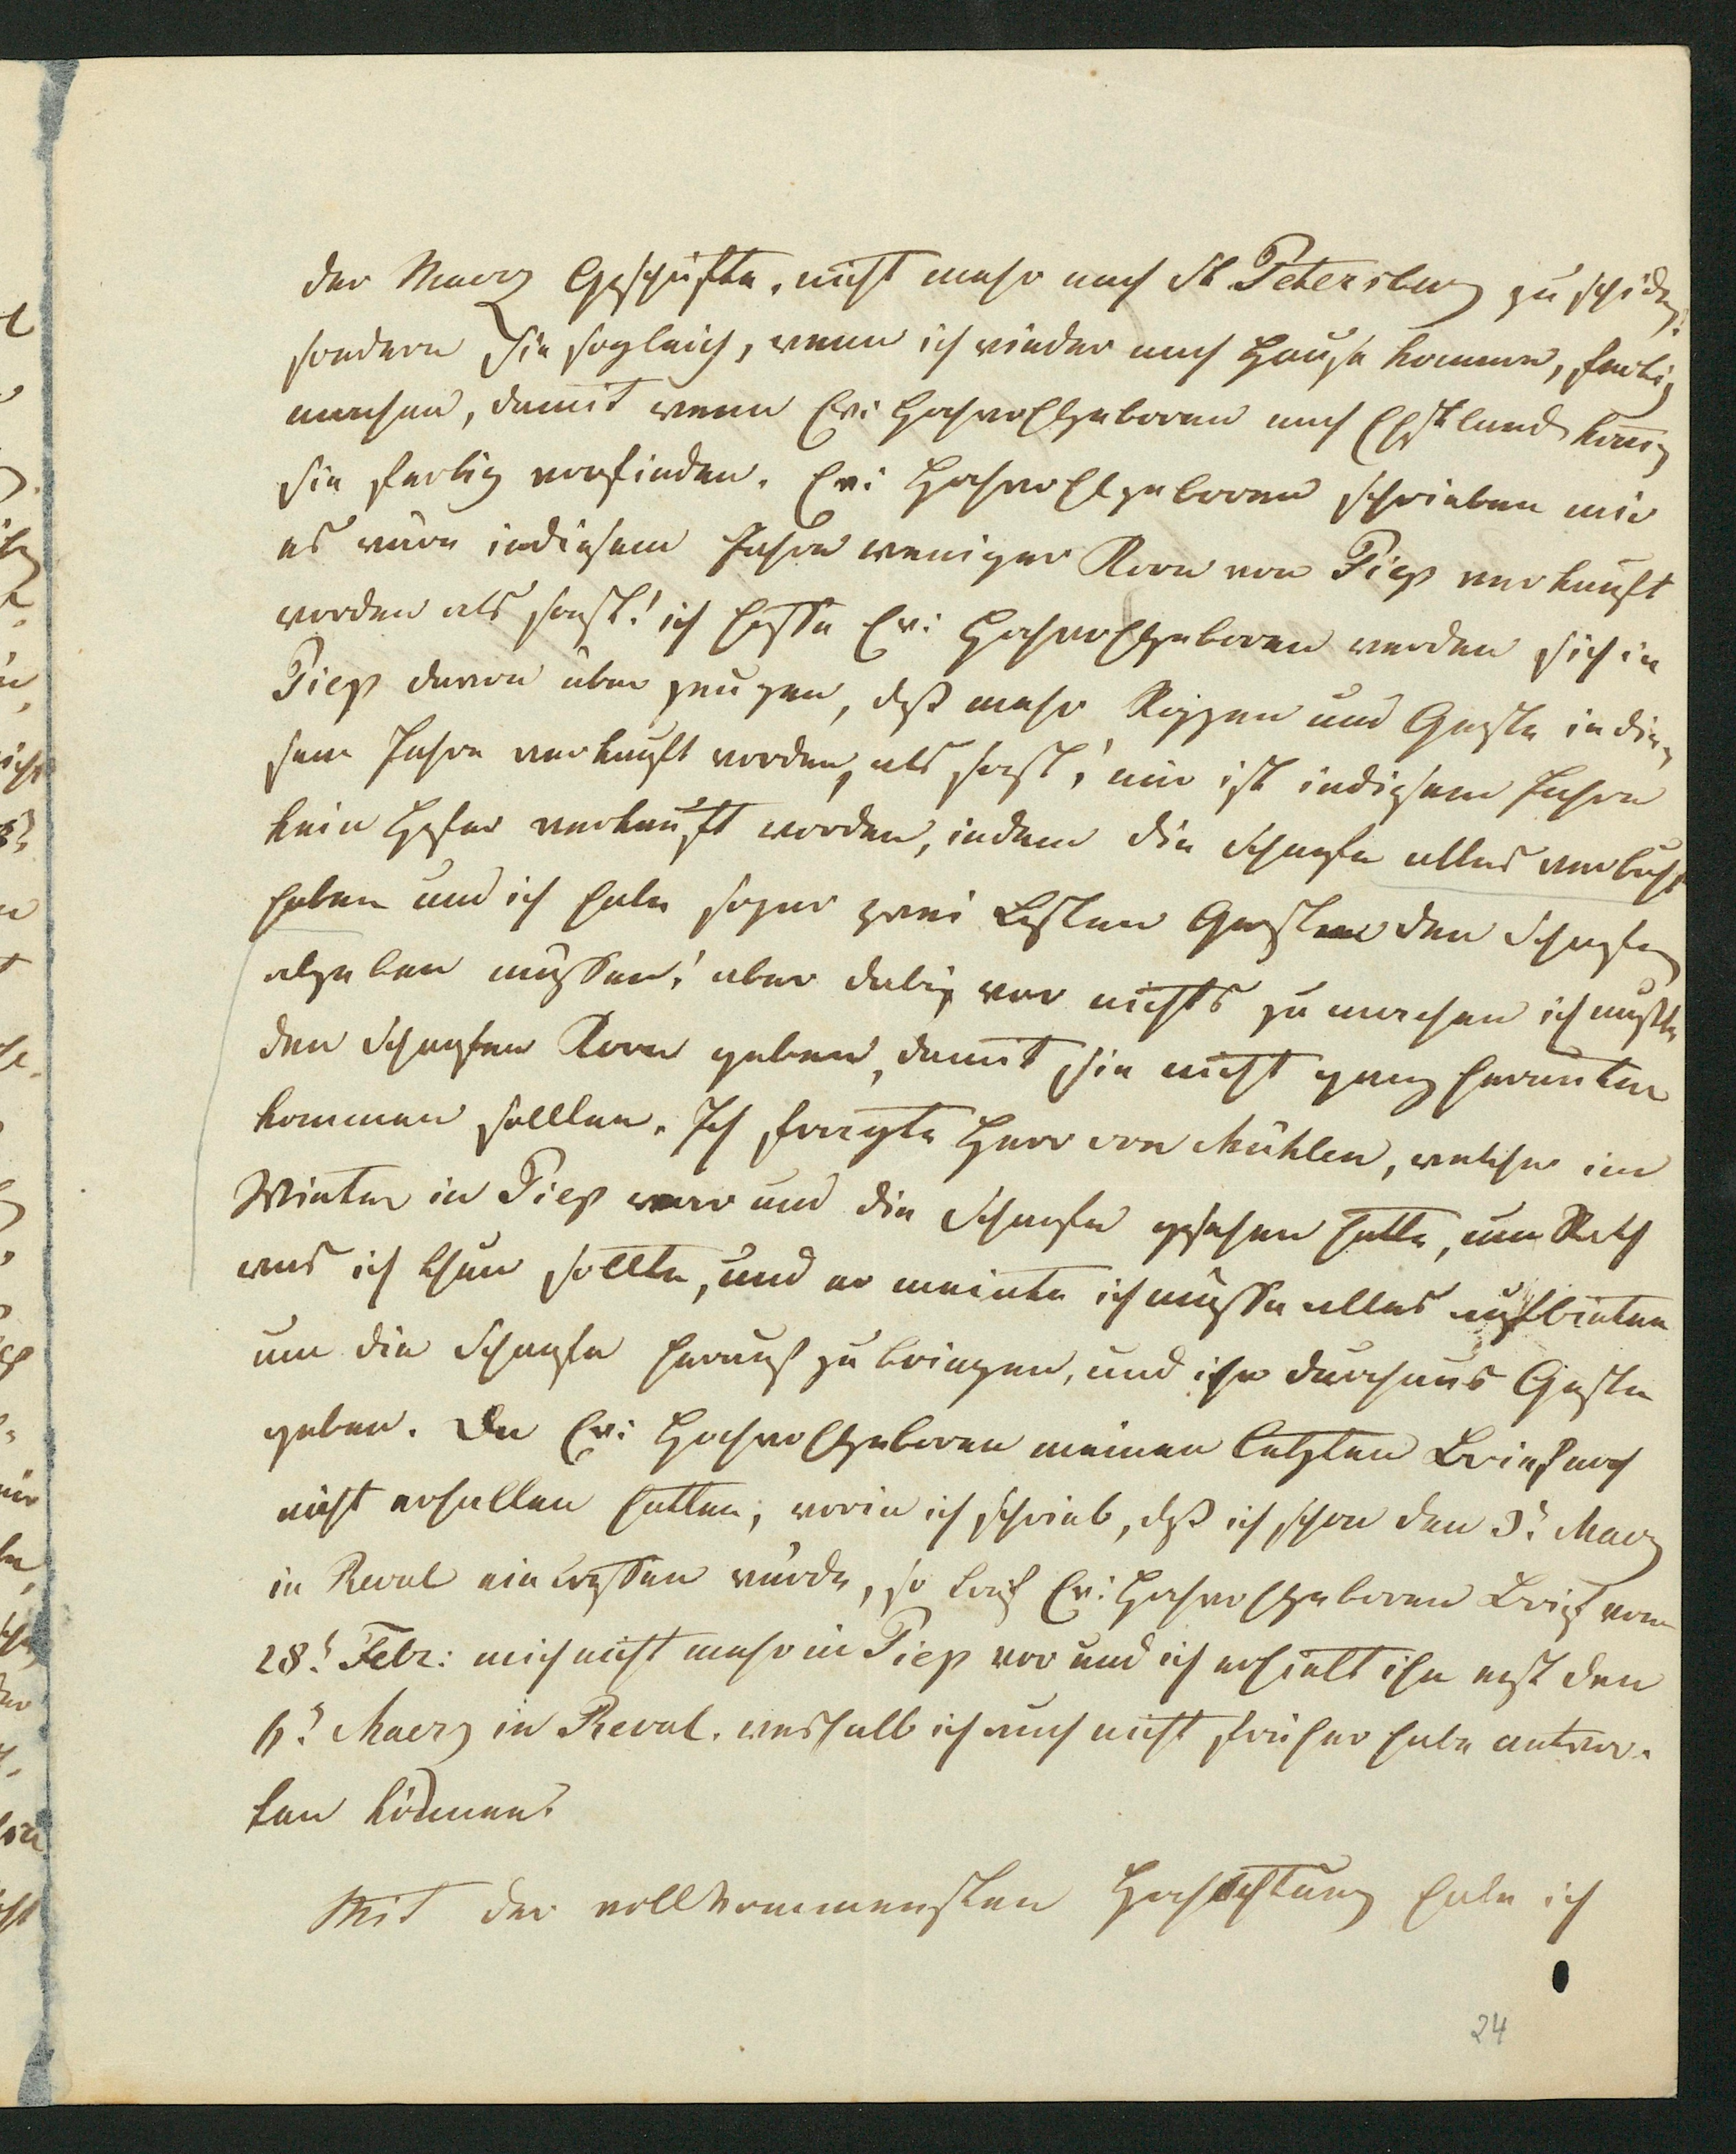 der Maerz Geschäfte, nicht mehr nach St Petersburg zu schicken,
sondern Sie sogleich, wenn ich wieder nach Hause komme, fertig
machen, damit wenn Ew: Hochwohlgeboren nach Ehstland komen
sie fertig vorfinden. Ew: Hochwohlgeboren schrieben mir
es wäre indiesem Jahre weniger Korn von Piep verkauft
worden als sonst! ich hoffe Ew: Hochwohlgeboren werden sich in
Piep davon über zeugen, daß mehr Roggen und Gerste in die-
sem Jahre verkauft worden, als sonst, nur ist indiesem Jahre
kein Hafer verkauft worden, indem die Schaafe alles
haben und ich habe sogar zwei Lasten Gersten den Schaafen
abgeben müssen! aber dabey war nichts zu machen ich mußte
den Schaafen Korn geben, damit sie nicht ganz herunter
kommen sollten. Ich fragte Herr von Mühlen, welcher im
Winter in Piep war und die Schaafe gesehen hatte, um Rath
was ich thun sollte, und er meinte ich müsse alles aufbieten
um die Schaafe herauf zu bringen, und ihr durchaus Gerste
geben. Da Ew: Hochwohlgeboren meinen letzten Brief noch
nicht erhalten hatten, worin ich schrieb, daß ich schon den 3t Maerz
in Reval eintreffen würde, so traf Ew: Hochwohlgeboren Brief vom
28t Febr: mich nicht mehr in Piep vor und ich erhielt ihn erst den
6t Maerz in Reval. weshalb ich auch nicht früher habe antwor-
ten können.
Mit der vollkommensten Hochachtung habe ich
24